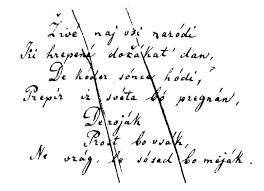 Živé naj vsi naródi
Ki hrepené dočakat' dan,
De koder sónce hódi,
Prepir iz svéta bó pregnán,
De roják
Prost bo vsák,
Ne vrág, le sósed bo mêják.